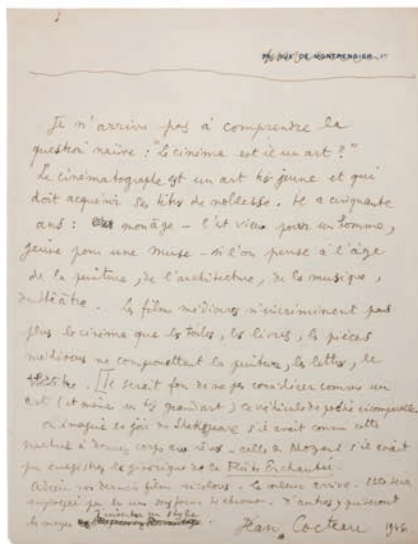 36, RUE DE MONTPENSIER
Je n'arrive pas à comprendre la
question naïve : "Le cinéma est il un art ?"
Le cinématographe est un art très jeune et qui
doit acquérir ses titres de noblesse. Il a cinquante
ans : mon âge – c'est vieux pour un homme,
jeune pour une muse – si l'on pense à l'âge
de la peinture, de l'architecture, de la musique,
du théâtre. Les films médiocres n'incriminent pas
plus le cinéma que les toiles, les livres, les pièces
médiocres ne compromettent la peinture, les lettres, le
théâtre. Il serait fou de ne pas considérer comme un
art (et même un très grand art) ce véhicule de poésie incomparable
On imagine la joie de Shakespeare s'il avait connu cette
machine à donner corps aux rêves – celle de Mozart s'il avait
pu enregistrer le générique de la Flûte Enchantée.
Adieu nos derniers films incolores. La couleur arrive.
D'autres y puiseront
inventer un style
Jean Cocteau 1946